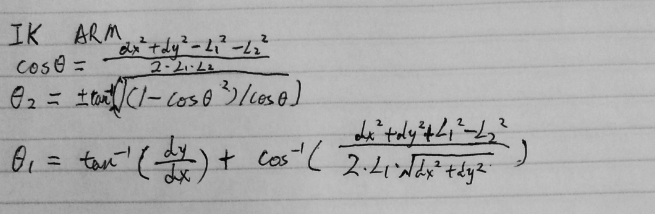 IK ARM
cosθ = (dx² + dy² - L₁² - L₂²) / (2·L₁·L₂)
θ₂ = ±tan⁻¹[√(1-cosθ²)/cosθ]
θ₁ = tan⁻¹(dy/dx) + cos⁻¹((dx² + dy² + L₁² - L₂²) / (2·L₁·√(dx² + dy²)))